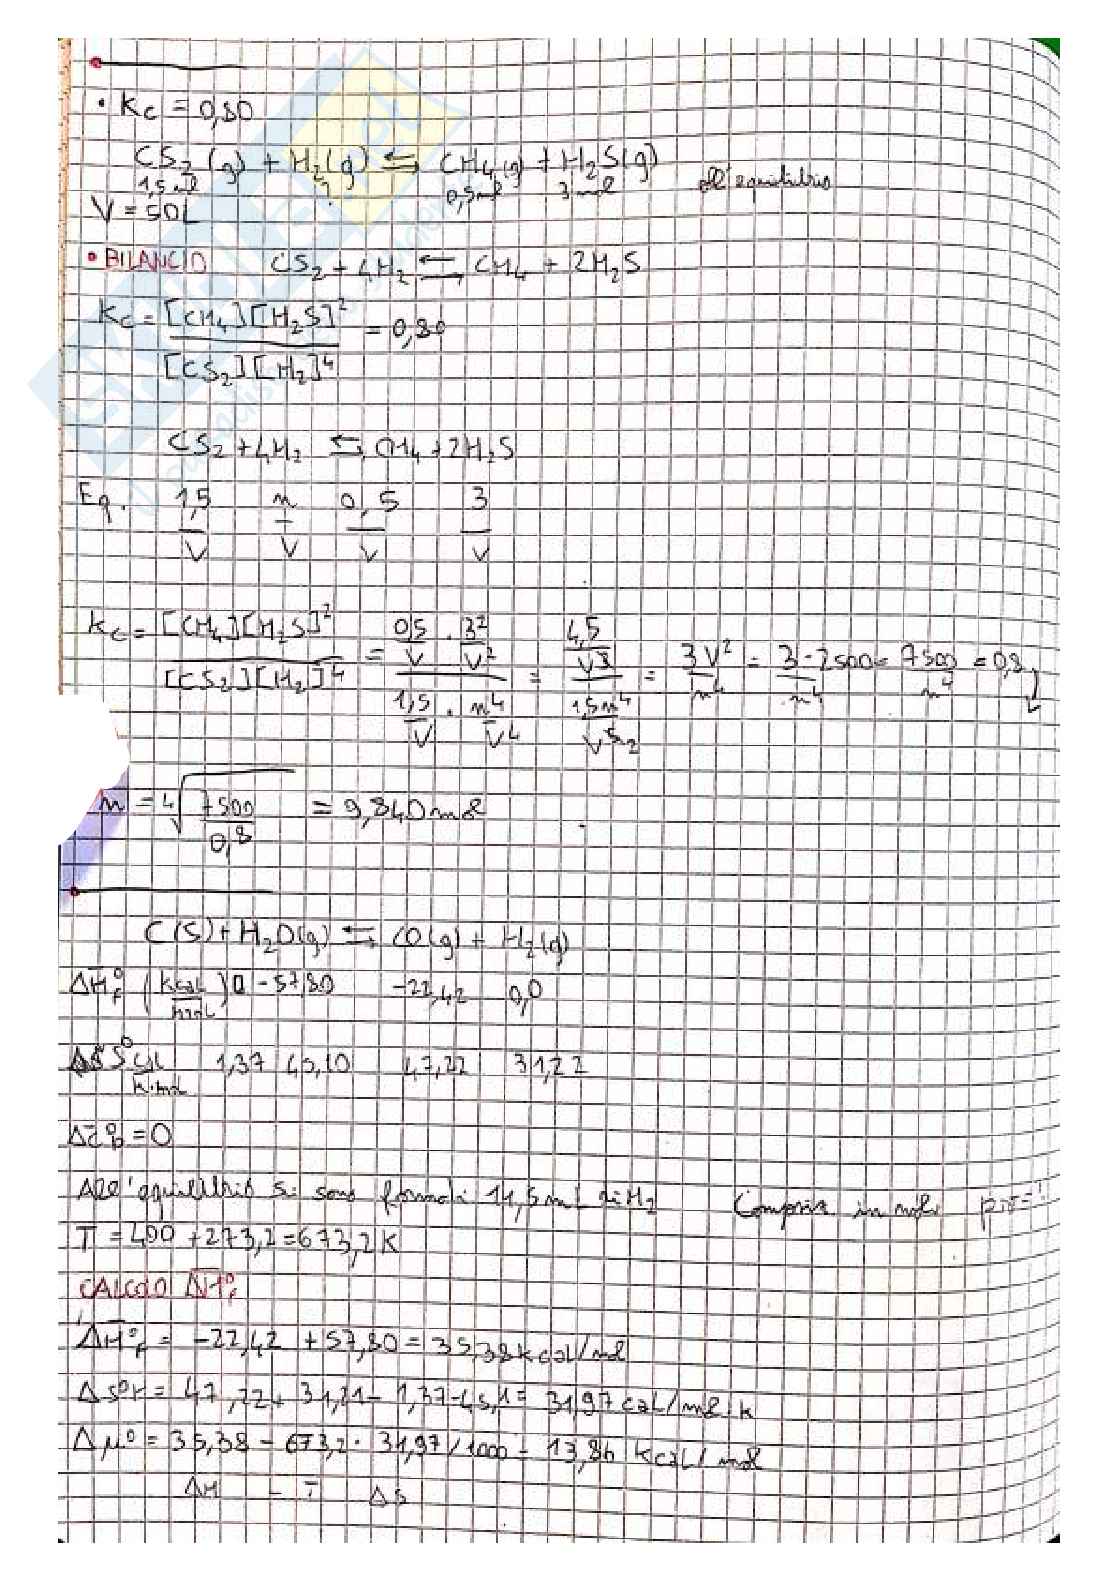 • Kc = 0,80
CS2 (g) + H2 (g) ⇆ CH4 (g) + H2S (g)
1,5 mol ? 0,5 mol 3 mol all'equilibrio
V = 50L
• BILANCIO CS2 + 4H2 ⇆ CH4 + 2H2S
Kc = [CH4][H2S]^2 / [CS2][H2]^4 = 0,80
CS2 + 4H2 ⇆ CH4 + 2H2S
Eq. 1,5/V n/V 0,5/V 3/V
Kc = [CH4][H2S]^2 / [CS2][H2]^4 = (0,5/V · 3^2/V^2) / (1,5/V · n^4/V^4) = (4,5/V^3) / (1,5n^4/V^5) = 3V^2/n^4 = 3·2500/n^4 = 7500/n^4 = 0,8
n = ⁴√(7500/0,8) = 9,840 mol
C(S) + H2O(g) ⇆ CO(g) + H2(g)
ΔH°f (kcal/mol) 0 -57,80 -22,42 0,0
S° cal/K·mol 1,37 45,10 47,22 31,22
Δc°p = 0
All'equilibrio si sono formati 14,5 mL di H2
T = 400 + 273,2 = 673,2 K
CALCOLO ΔH°f
ΔH°f = -22,42 + 57,80 = 35,38 kcal/mol
ΔS°r = 47,22 + 31,21 - 1,37 - 45,1 = 31,97 cal/mol·K
Δμ° = 35,38 - 673,2 · 31,97/1000 = 13,86 kcal/mol
ΔH - T ΔS